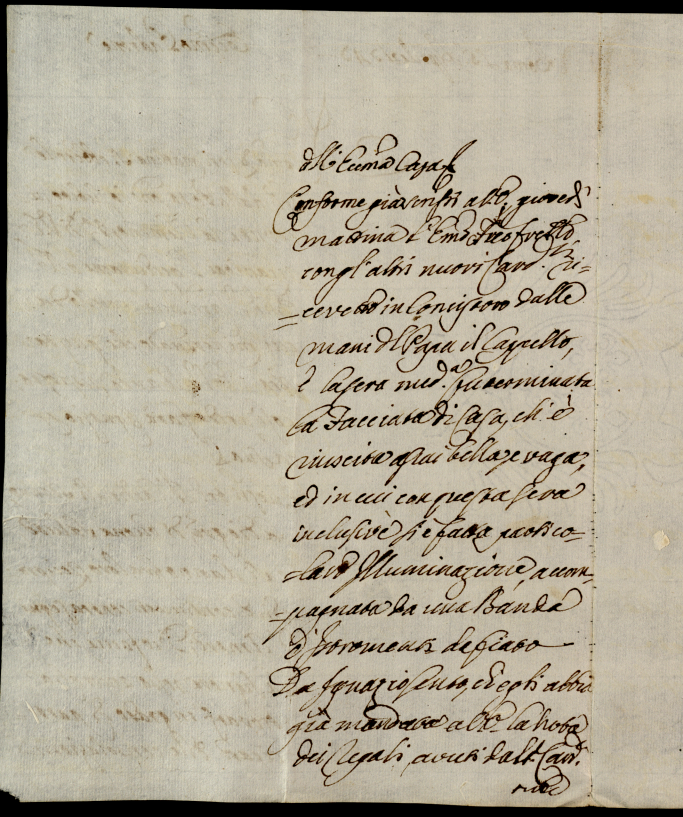 Conforme già scrissi a V.E. giovedì
mattina l'Em.o Fr.e
con gl'altri nuovi Card.li ri=
=cevetto in Concistoro dalle
mani del Papa il Cappello,
e la sera med.a fu terminata
la Facciata di Casa, ch'è
riuscita assai bella, e vaga,
ed in cui con questa sera
inclusive si è fatta partico=
=lare Illuminazione, accom=
=pagnata da una Banda
d'Istromenti da fiato
Da Ignazio sento, ch'egli abbia
già mandata a V.E. la Nota
dei Regali avuti dal Card.